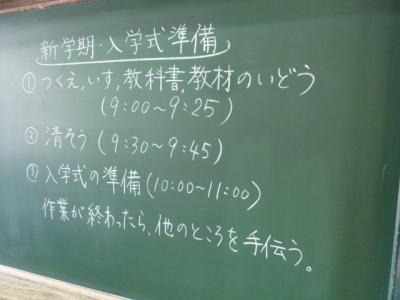 新学期・入学式準備
①つくえ,いす,教科書,教材のいどう
(9:00〜9:25)
②清そう(9:30〜9:45)
③入学式の準備(10:00〜11:00)
作業が終わったら、他のところを手伝う。